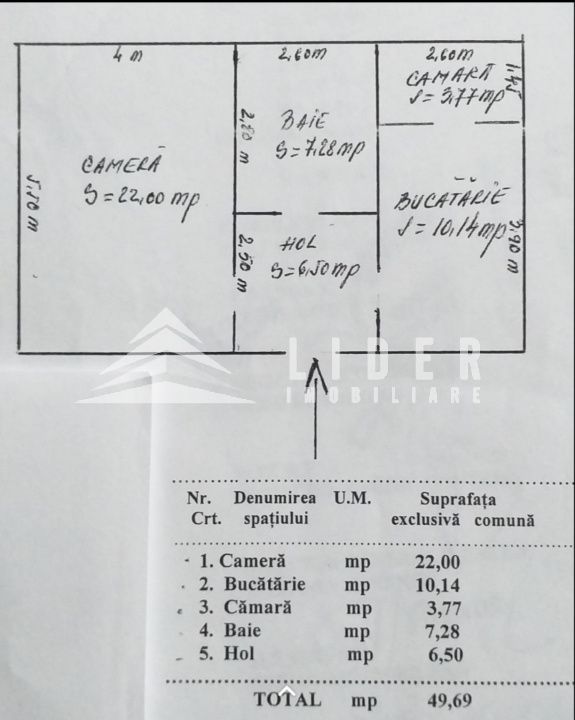 4 m
2,60m
2,60m
1,45
CAMARĂ
S = 3,77mp
BAIE
S = 7,28 mp
2,80 m
CAMERĂ
S = 22,00 mp
5,50 m
BUCATĂRIE
S = 10,14mp
3,90 m
HOL
S = 6,50mp
2,50 m
LIDER
IMOBILIARE
Nr. Denumirea U.M. Suprafața
Crt. spațiului exclusivă comună
1. Cameră mp 22,00
2. Bucătărie mp 10,14
3. Cămară mp 3,77
4. Baie mp 7,28
5. Hol mp 6,50
TOTAL mp 49,69